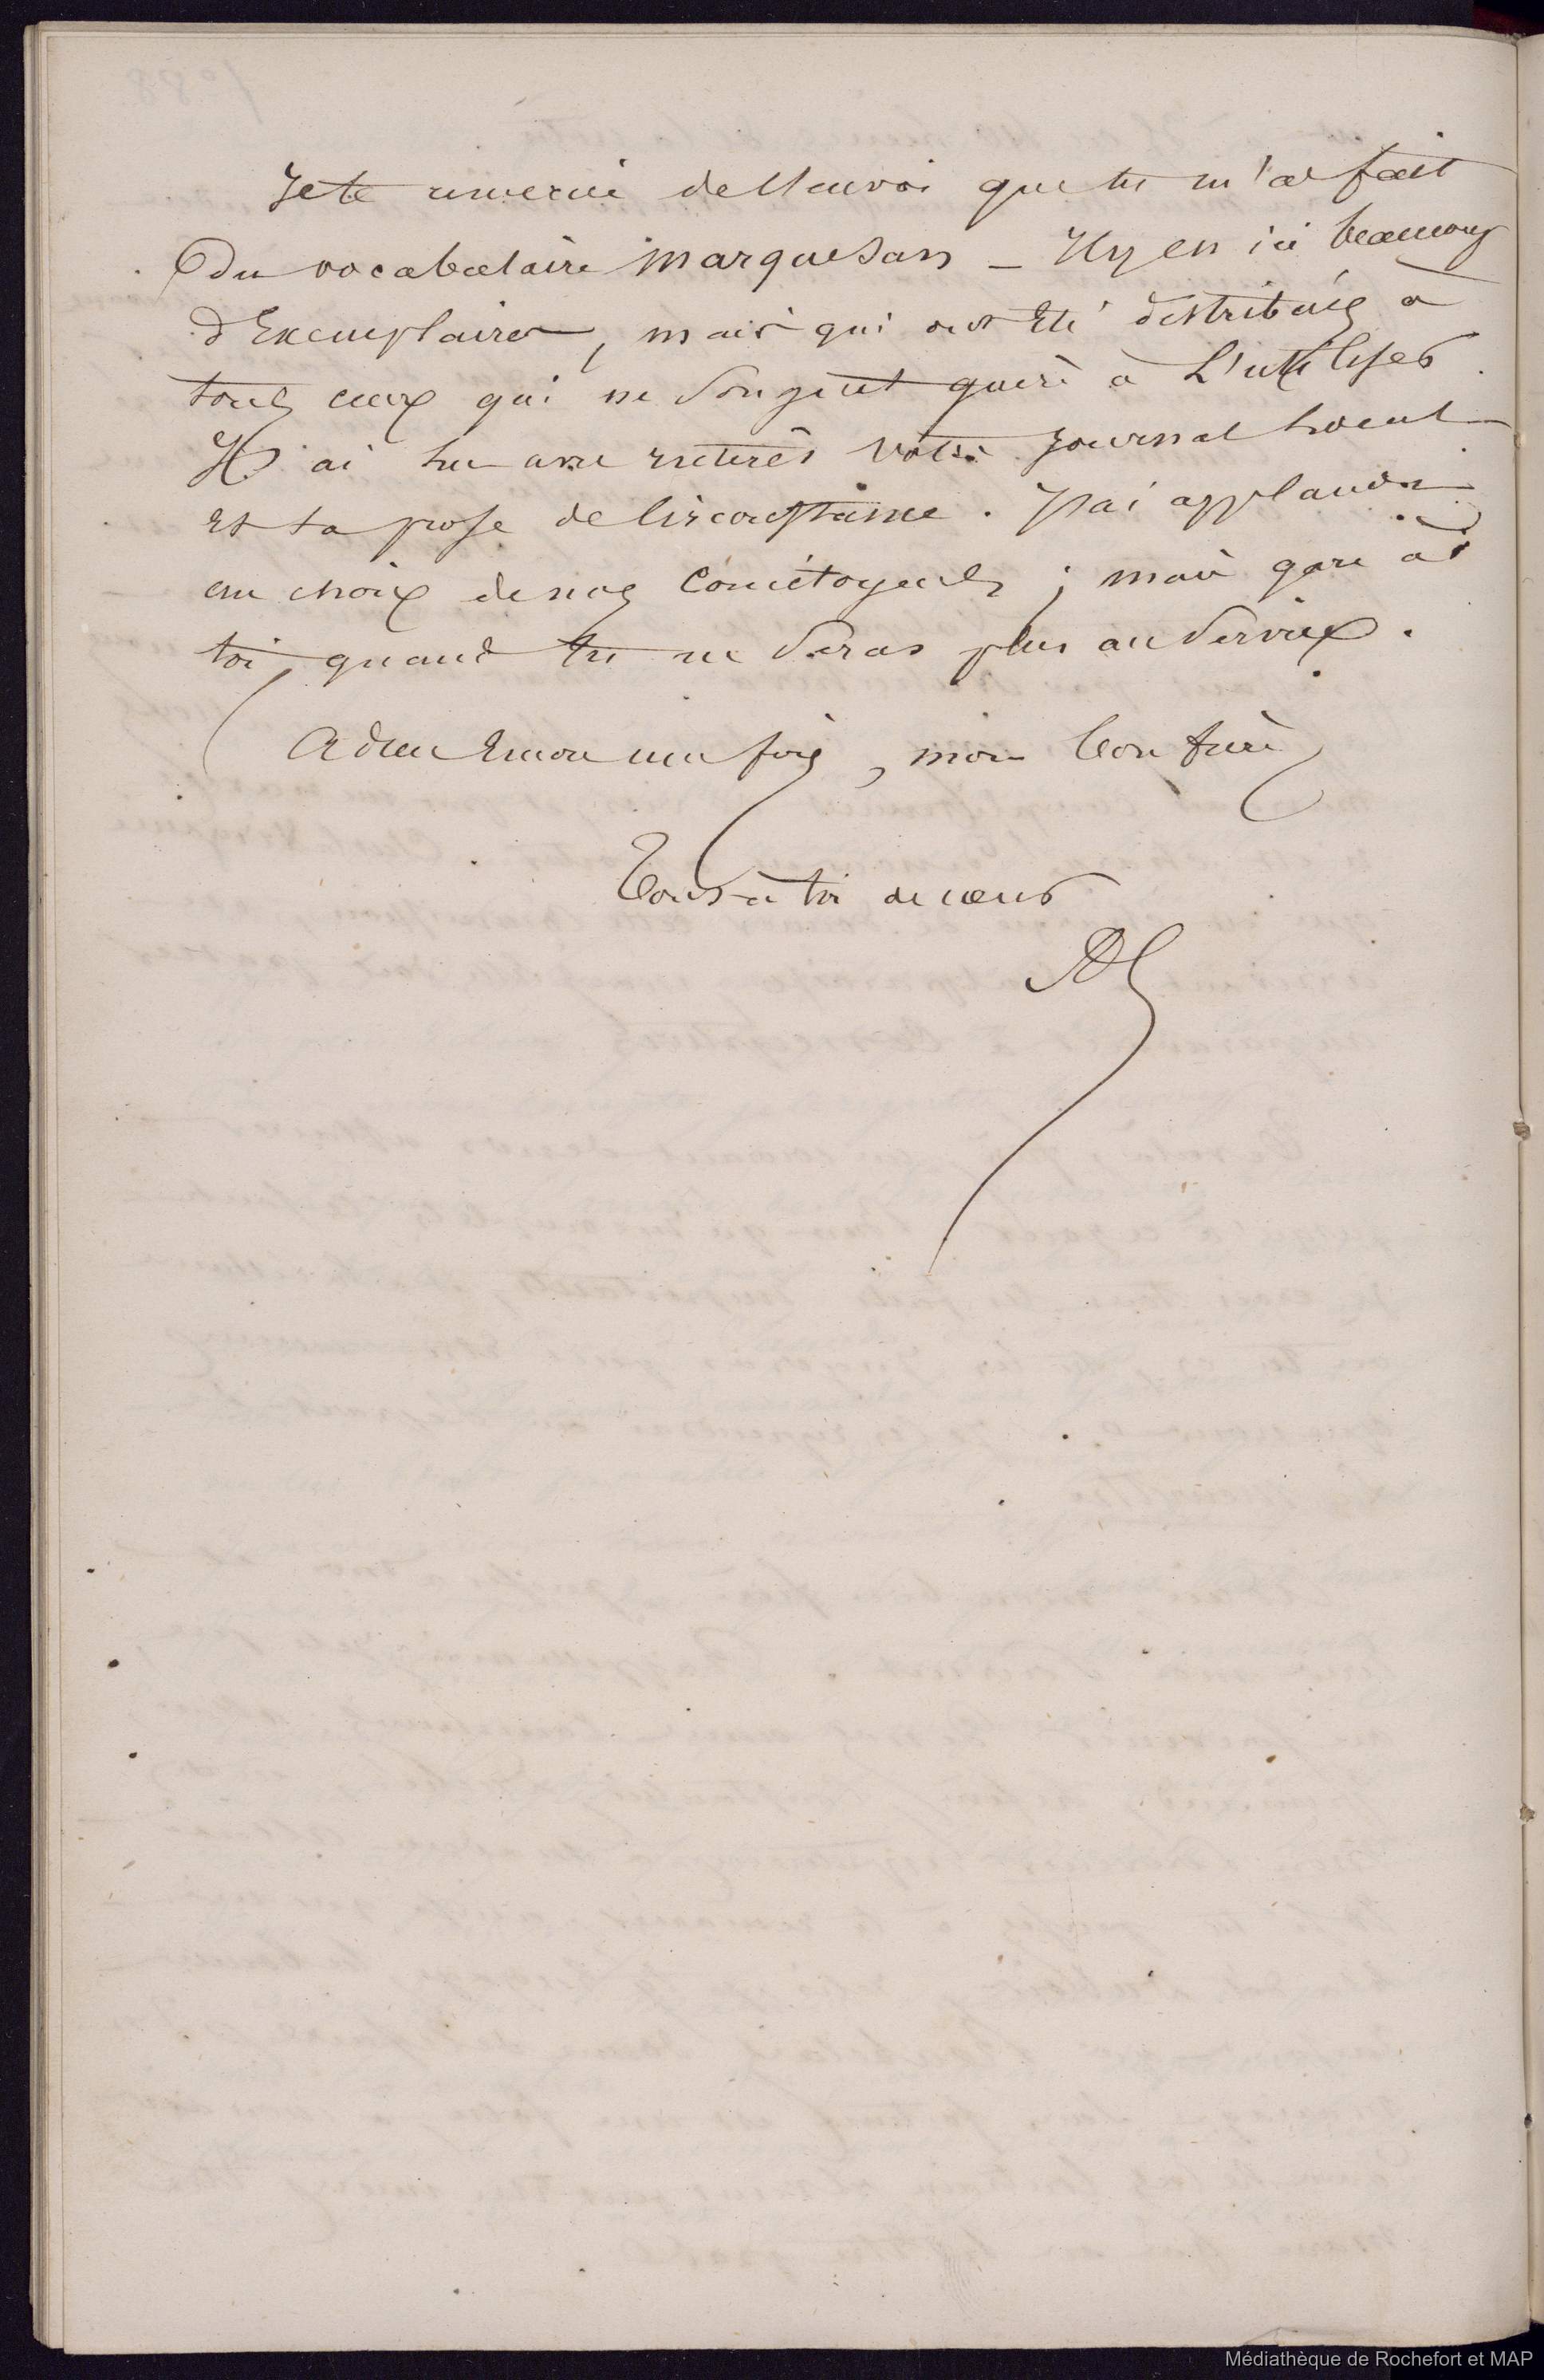 Je te remercie de l'envoi que tu m'as fait
du vocabulaire marquesan _ Il y en ici beaucoup
d'Exemplaires, mais qui ont été distribués à
tous ceux qui ne songent guère à L'utiliser
J'ai lu avec intérêt votre journal
et ta prose de circonstance. J'ai applaudi
au choix de nos concitoyens ; mais gare à
toi, quand tu ne seras plus au service.
Adieu encore une fois, mon bon frère
Tout à toi de cœur
Médiathèque de Rochefort et MAP